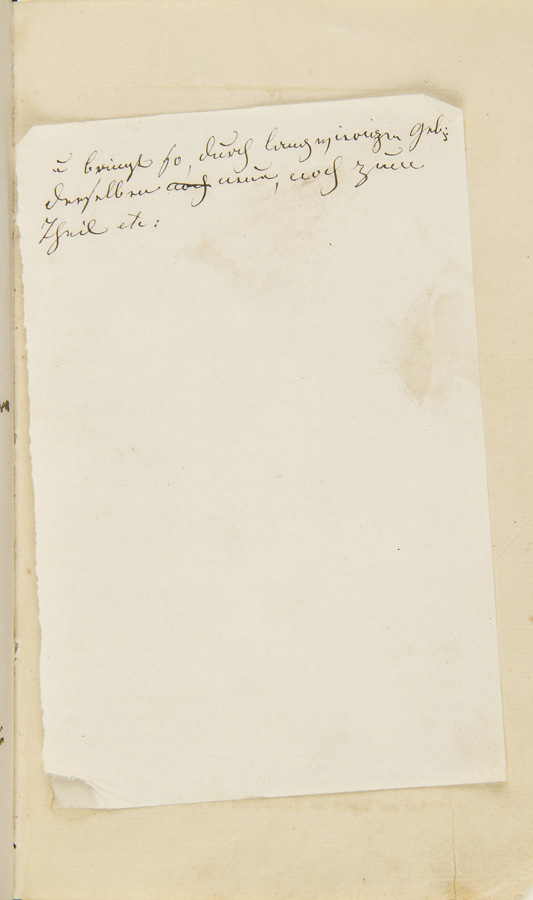 u bringt so, durch langwierigen Geb:
derselben noch neue, noch zum
Theil etc: